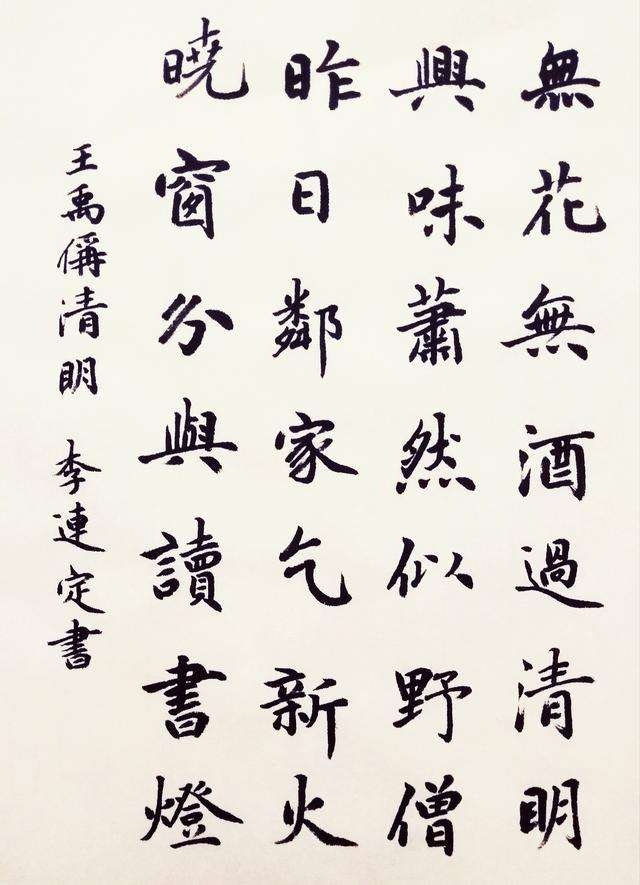 無花無酒過清明
興味蕭然似野僧
昨日鄰家乞新火
曉窗分與讀書燈
王禹偁清明 李連定書